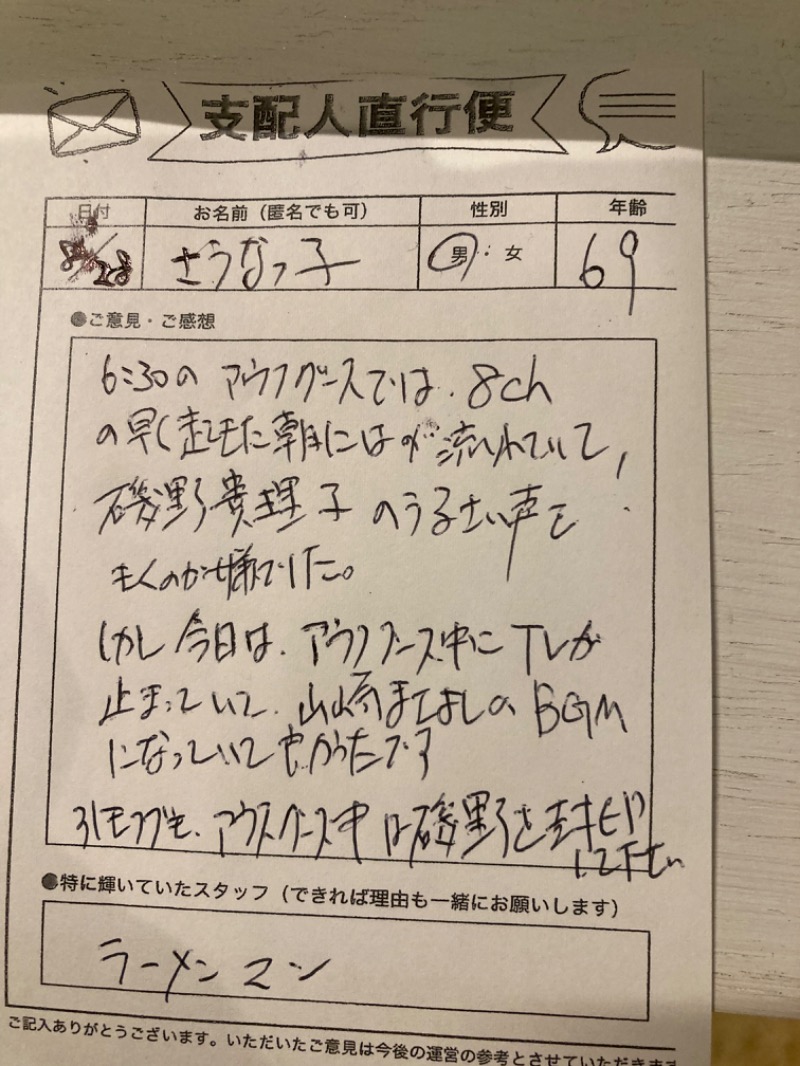 支配人直行便
日付 お名前（匿名でも可） 性別 年齢
8/28 さうなっ子 男：女 69
●ご意見・ご感想
6:30の アウフグースでは、8ch
の早く起きた朝にはが流れていて、
磯野貴理子のうるさい声を
きくのが嫌でした。
しかし今日は、アウフグース中にTVが
止まっていて、山崎まさよしのBGM
になっていてよかったです
引きつづき、アウフグース中は磯野を封印
して下さい
●特に輝いていたスタッフ（できれば理由も一緒にお願いします）
ラーメンマン
ご記入ありがとうございます。いただいたご意見は今後の運営の参考とさせていただきます